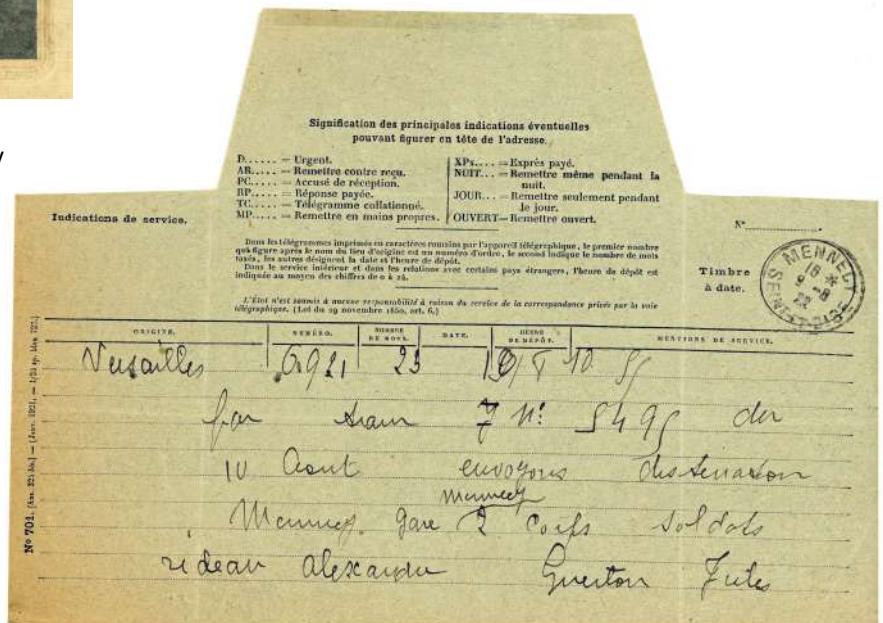 y
Signification des principales indications éventuelles
pouvant figurer en tête de l'adresse.
D...... = Urgent.
AR..... = Remettre contre reçu.
PC..... = Accusé de réception.
RP..... = Réponse payée.
TC..... = Télégramme collationné.
MP..... = Remettre en mains propres.
XPx.... = Exprès payé.
NUIT... = Remettre même pendant la
nuit.
JOUR... = Remettre seulement pendant
le jour.
OUVERT = Remettre ouvert.
Indications de service.
N°
Dans les télégrammes imprimés en caractères romains par l'appareil télégraphique, le premier nombre
qui figure après le nom du lieu d'origine est un numéro d'ordre, le second indique le nombre de mots
taxés, les autres désignent la date et l'heure de dépôt.
Dans le service intérieur et dans les relations avec certains pays étrangers, l'heure de dépôt est
indiquée au moyen des chiffres de 0 à 24.
L'État n'est soumis à aucune responsabilité à raison du service de la correspondance privée par la voie
télégraphique. (Loi du 29 novembre 1850, art. 6.)
Timbre
à date.
MENNECY
18 *
9 -8
22
SEINE-ET-OISE
ORIGINE. NUMÉRO. NOMBRE DE MOTS. DATE. HEURE DE DÉPÔT. MENTIONS DE SERVICE.
Versailles 6921 23 10
par train N° 5495 du
10 Aout envoyons destination
Mennecy
Mennecy gare 2 corps soldats
rideau alexandre Guerton Jules
N° 701.